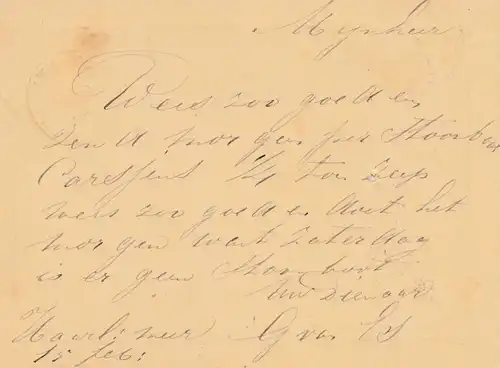 Mynheer
Wees zoo goed en
zend morgen per Stoomboot
Carsjens 1/4 ton zeep
wees zoo goed en doet het
morgen want Zaterdag
is er geen Stoomboot
Uw Dienaar
Haarl: meer G van Es
15 feb: